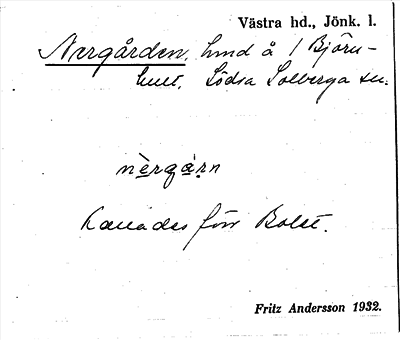 Västra hd., Jönk. l.
Nergården, hmd å 1 Björn-
hult, Södra Solberga sn.
nè̱rgà̱ṛn
Kallades förr Bolet.
Fritz Andersson 1932.